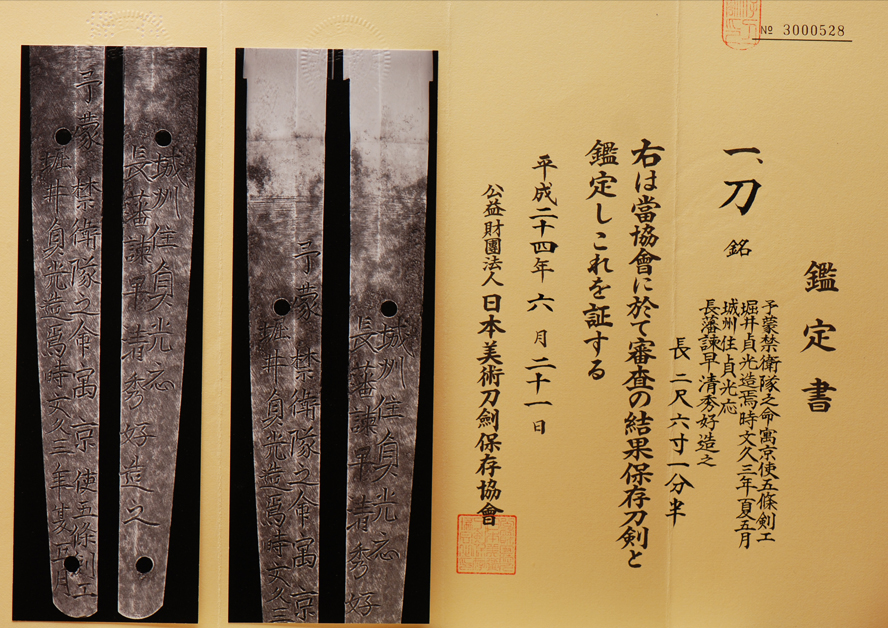 № 3000528
鑑定書
一、刀 銘
予蒙禁衛隊之命寓京使五條剣工
堀井貞光造焉時文久三年夏五月
城州住貞光応
長藩諫早清秀好造之
長 二尺六寸一分半
右は當協會に於て審査の結果保存刀剣と
鑑定しこれを証する
平成二十四年 六 月 二十一 日
公益財團法人 日本美術刀劍保存協會
城州住貞光応
長藩諫早清秀好
予蒙禁衛隊之命寓京
堀井貞光造焉時文久三
城州住貞光応
長藩諫早清秀好造之
予蒙禁衛隊之命寓京使五條剣工
堀井貞光造焉時文久三年夏五月